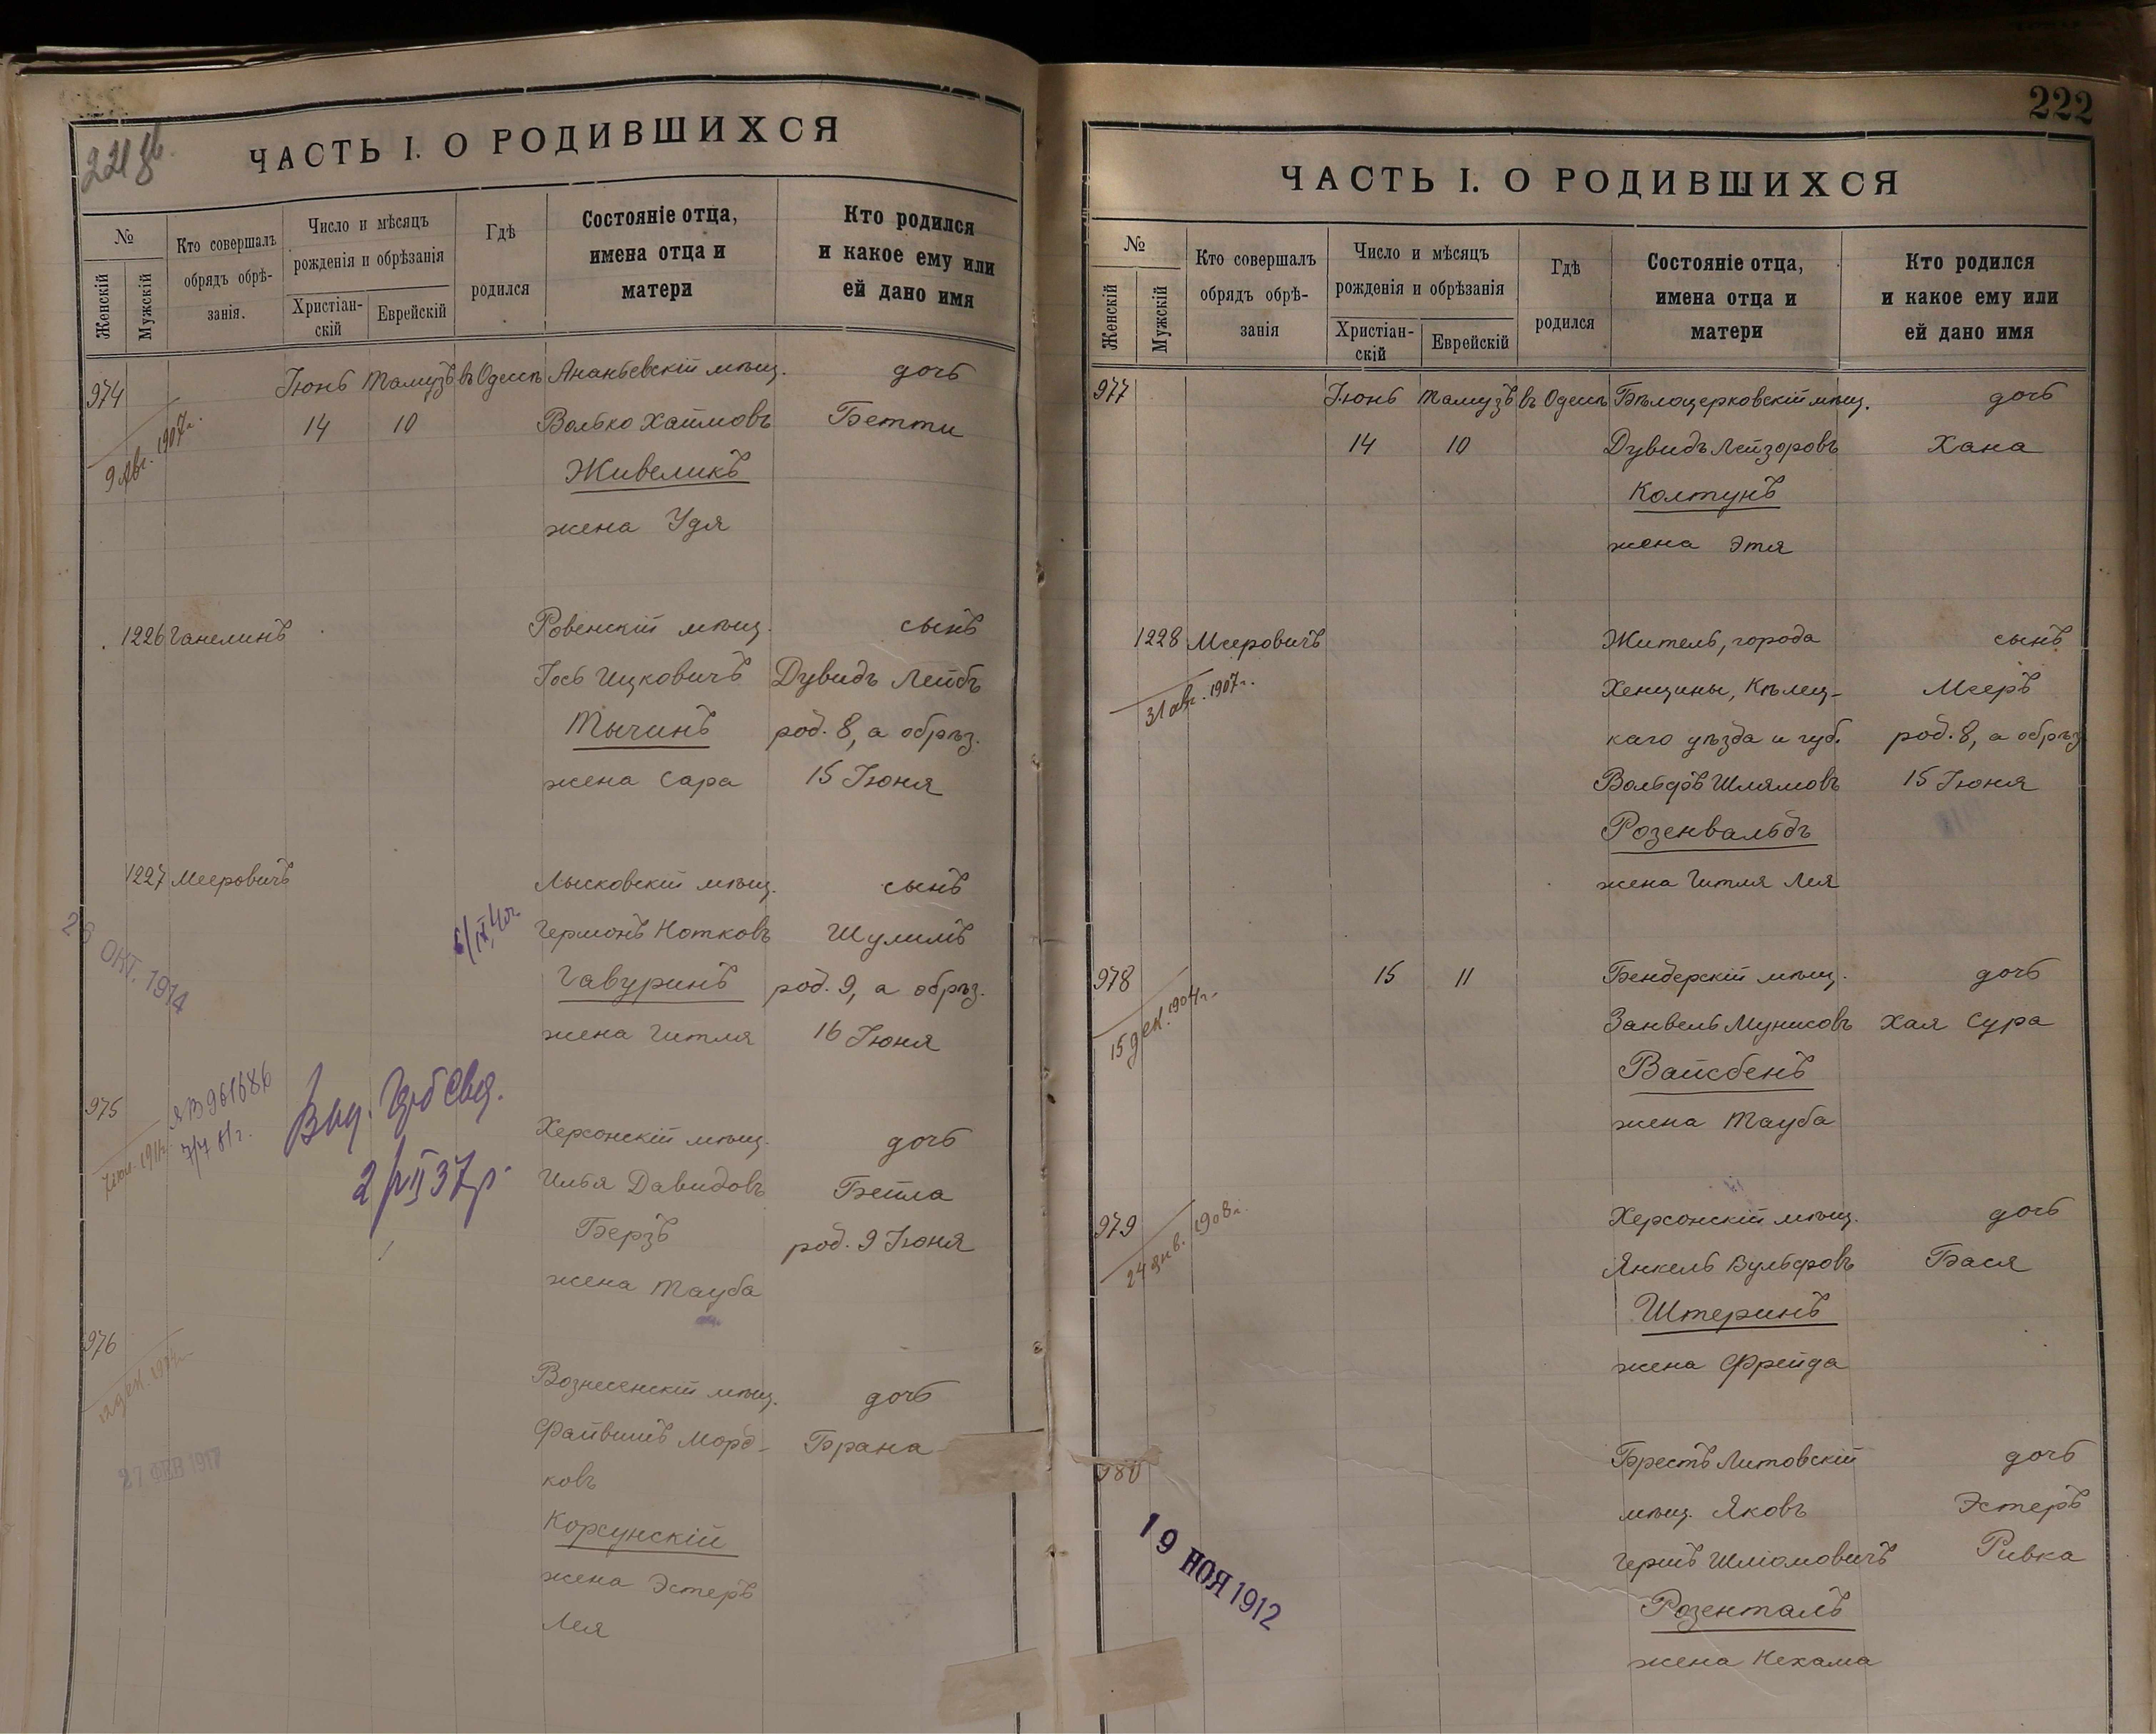 221 об.
ЧАСТЬ I. О РОДИВШИХСЯ
№
Женскій
Мужскій
Кто совершалъ
обрядъ обрѣ-
занія.
Число и мѣсяцъ
рожденія и обрѣзанія
Христіан-
скій
Еврейскій
Гдѣ
родился
Состояніе отца,
имена отца и
матери
Кто родился
и какое ему или
ей дано имя
974 Іюнь Тамузъ въ Одессѣ Ананьевскій мѣщ. дочь
9 Авг. 1907 г. 14 10 Волько Хаимовъ Бетти
Живеликъ
жена Удя
1226 Ганелинъ Ровенскій мѣщ. сынъ
Іось Ицковичъ Дувидъ Лейбъ
Тычинъ род. 8, а обрѣз.
жена Сара 15 Іюня
1227 Мееровичъ Лысковскій мѣщ. сынъ
Германъ Нотковъ Шулимъ
Гавуринъ род. 9, а обрѣз.
жена Гитля 16 Іюня
26 ОКТ. 1914
975 Херсонскій мѣщ. дочь
ЯВ 961686
7/7 81 г.
Илья Давидовъ Бейла
Берзъ род. 9 Іюня
жена Тауба
976 Вознесенскій мѣщ. дочь
12 дек. 1904 г.
Файвишъ Морд- Брана
ковъ
Корсунскій
жена Эстеръ
Лея
27 ФЕВ 1917
222
ЧАСТЬ I. О РОДИВШИХСЯ
№
Женскій
Мужскій
Кто совершалъ
обрядъ обрѣ-
занія
Число и мѣсяцъ
рожденія и обрѣзанія
Христіан-
скій
Еврейскій
Гдѣ
родился
Состояніе отца,
имена отца и
матери
Кто родился
и какое ему или
ей дано имя
977 Іюнь Тамузъ въ Одессѣ Бѣлоцерковскій мѣщ. дочь
14 10 Дувидъ Лейзоровъ Хана
Колтунъ
жена Этя
1228 Мееровичъ Житель, города сынъ
31 авг. 1907 г. Хенцины, Кѣлец- Мееръ
каго уѣзда и губ. род. 8, а обрѣз
Вольфъ Шлямовъ 15 Іюня
Розенвальдъ
жена Гитля Лея
978 15 11 Бендерскій мѣщ. дочь
15 дек. 1904 г. Занвель Мунисовъ Хая Сура
Вайсбенъ
жена Тауба
979 Херсонскій мѣщ. дочь
24 янв. 1908 г. Янкель Вульфовъ Бася
Штеринъ
жена Фрейда
980 Брестъ Литовскій дочь
мѣщ. Яковъ Эстеръ
Гершъ Шліомовичъ Ривка
Розенталь
жена Нехама
19 НОЯ 1912